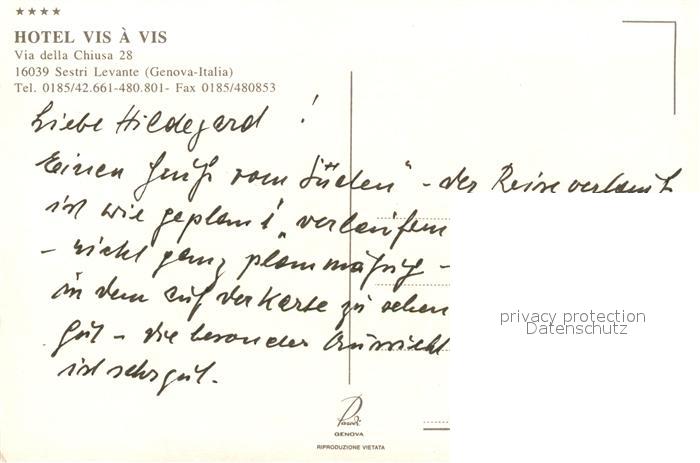 ★★★★
HOTEL VIS À VIS
Via della Chiusa 28
16039 Sestri Levante (Genova-Italia)
Tel. 0185/42.661-480.801- Fax 0185/480853
Liebe Hildegard !
Einen Gruß vom Süden" - der Reiseverlauf
ist wie geplant „verlaufen
- nicht ganz planmäßig -
in dem auf der Karte zu sehen
gut - die besonder Aussicht
ist sehr gut.
privacy protection
Datenschutz
Parodi
GENOVA
RIPRODUZIONE VIETATA